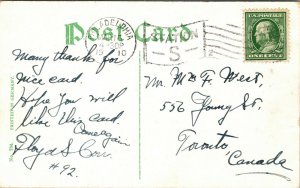 Post Card
PHILADELPHIA
S
U.S. POSTAGE
ONE CENT
Many thanks for
nice card.
Hope you will
like this card.
Come again
Floyd S.
#92.
Mr. M F. West,
556 Young St.
Toronto
Canada
PRINTED IN GERMANY.